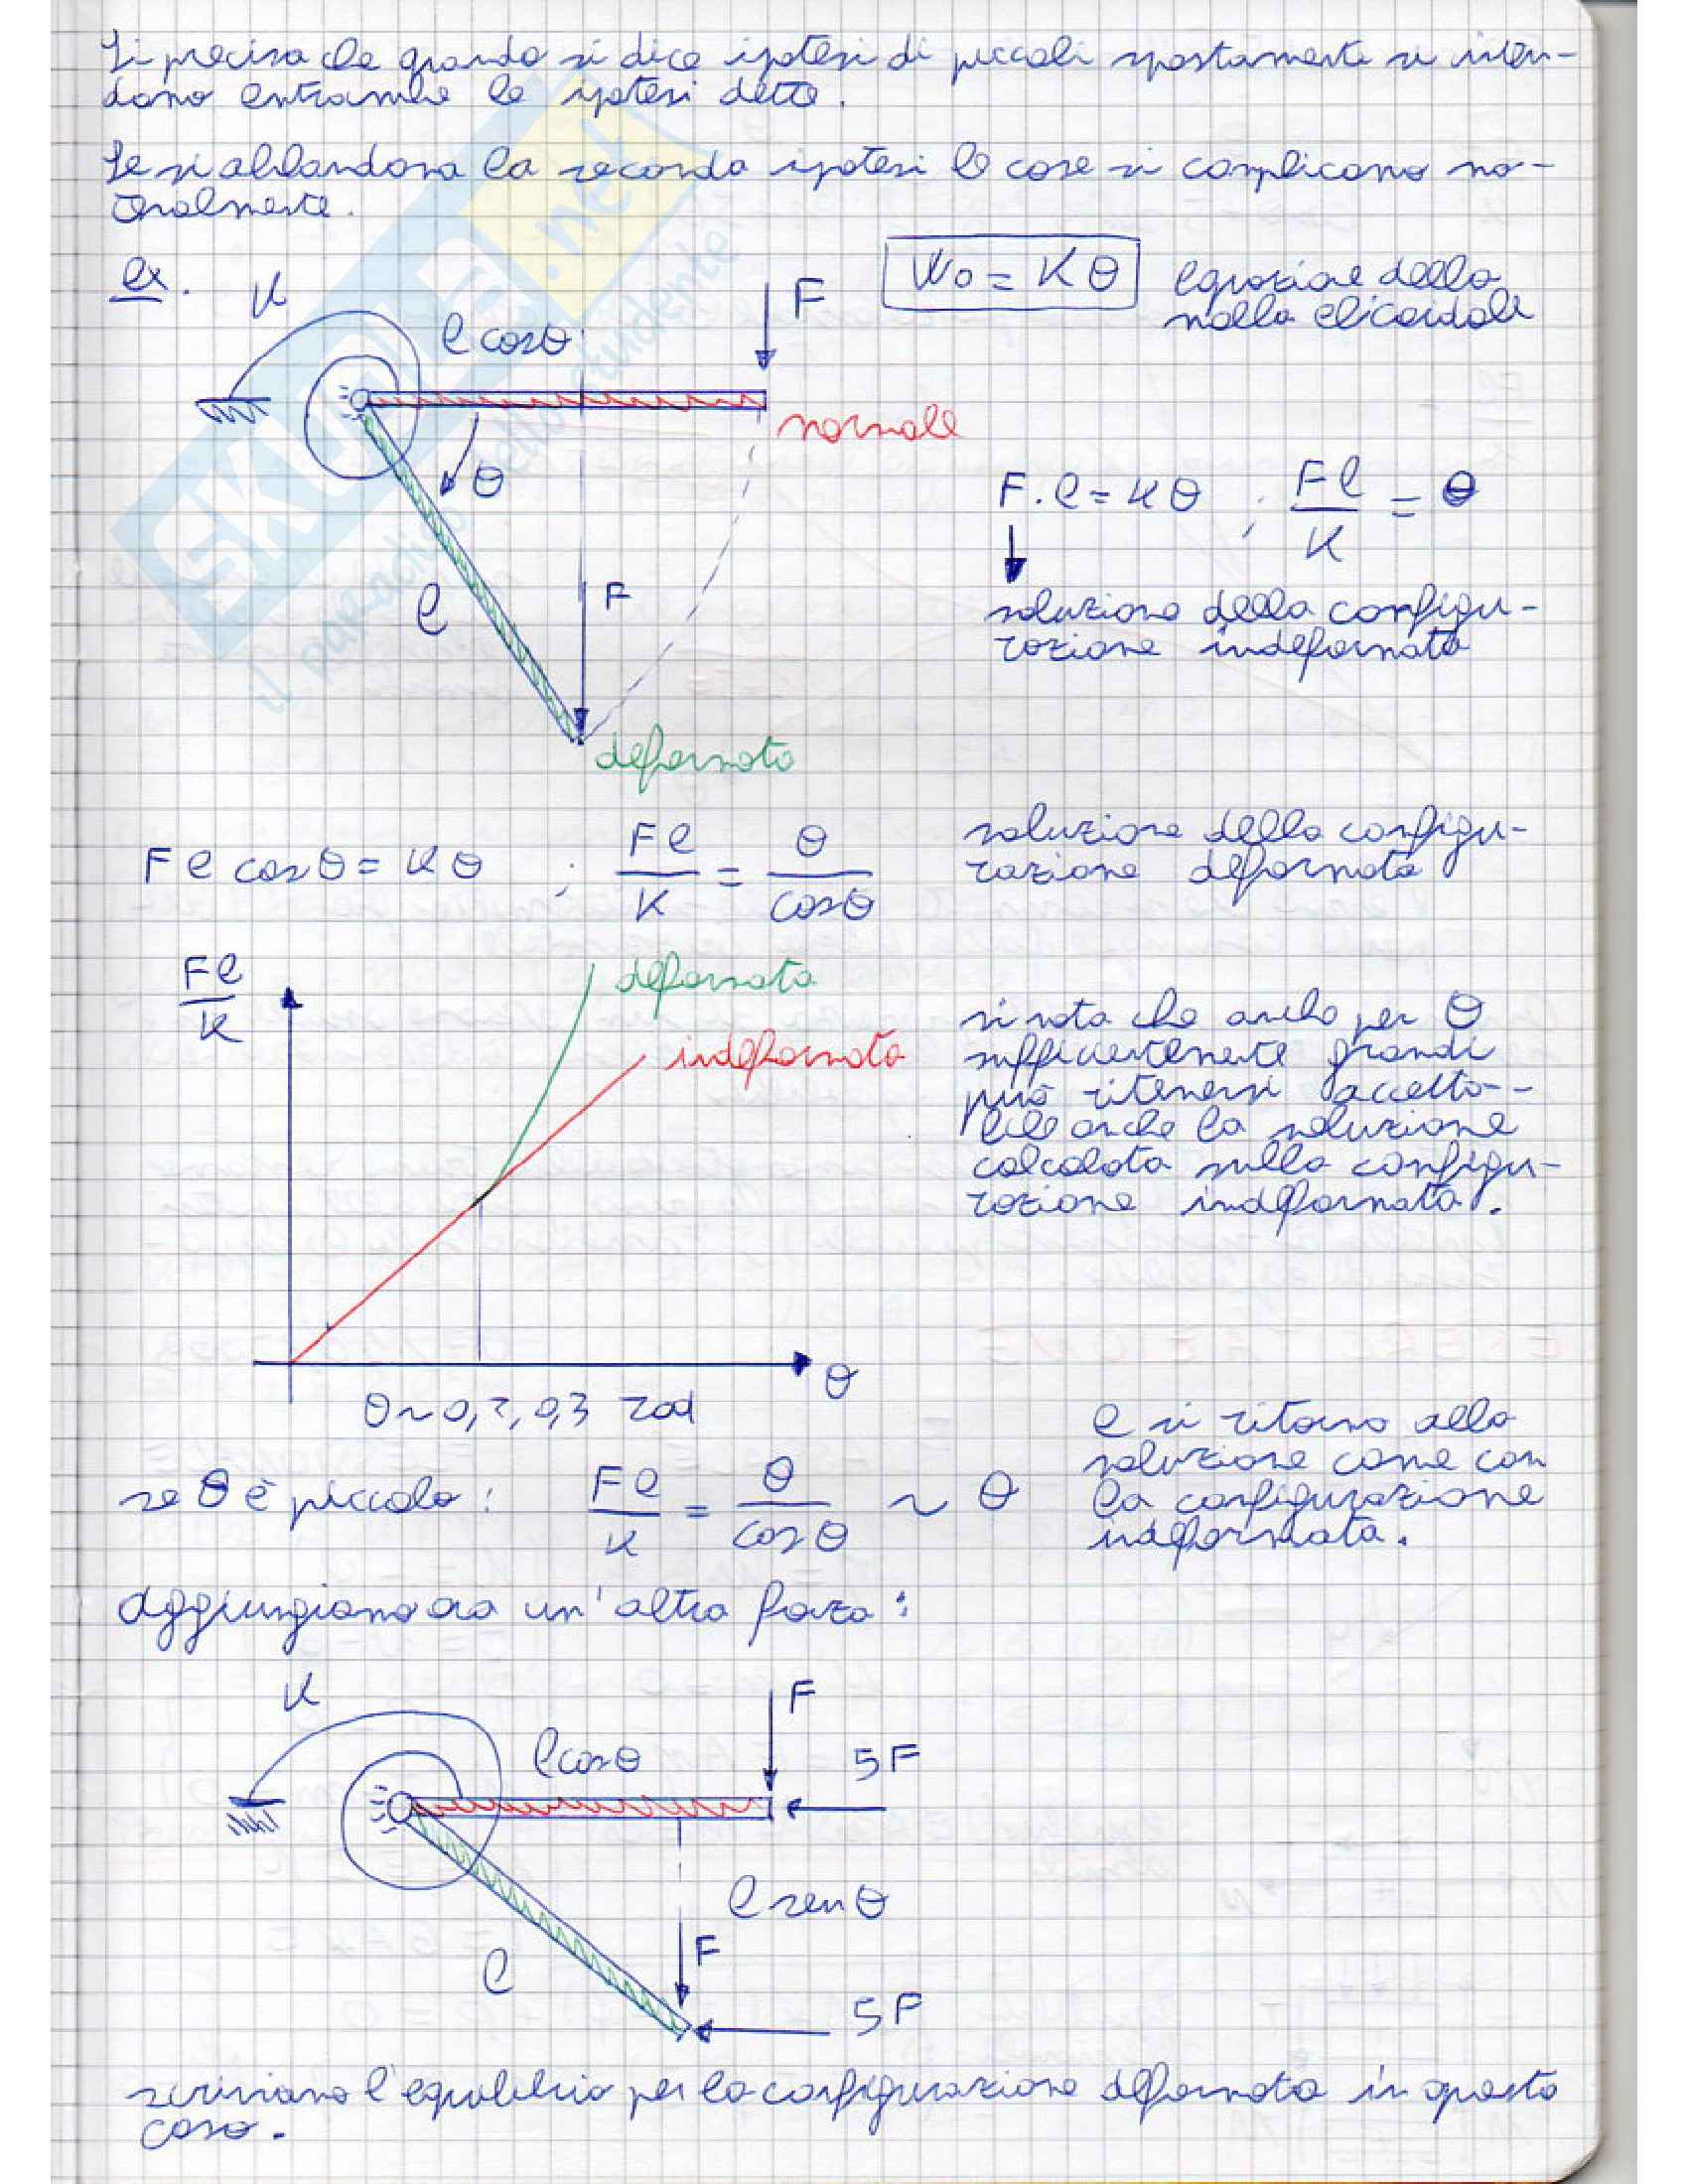 Si precisa che quando si dice ipotesi di piccoli spostamenti si inten-
dono entrambe le ipotesi dette.
Se si abbandona la seconda ipotesi le cose si complicano no-
tevolmente.
ex.
K
l cosθ
F
Mo = Kθ
equazione della
molla elicoidale
normale
θ
F·l = Kθ ; Fl/K = θ
l
F
soluzione della configu-
razione indeformata
deformata
Fl cosθ = Kθ ; Fl/K = θ/cosθ
soluzione della configu-
razione deformata
Fl/K
deformata
indeformata
si nota che anche per θ
sufficientemente grandi
può ritenersi accetta-
bile anche la soluzione
calcolata sulla configu-
razione indeformata.
θ
θ~0,2, 0,3 rad
se θ è piccolo: Fl/K = θ/cosθ ~ θ
e si ritorna alla
soluzione come con
la configurazione
indeformata.
aggiungiamo ora un'altra forza:
K
F
l cosθ
5F
l senθ
F
l
5F
scriviamo l'equilibrio per la configurazione deformata in questo
caso.
SKUOLA.net
il paradiso dello studente